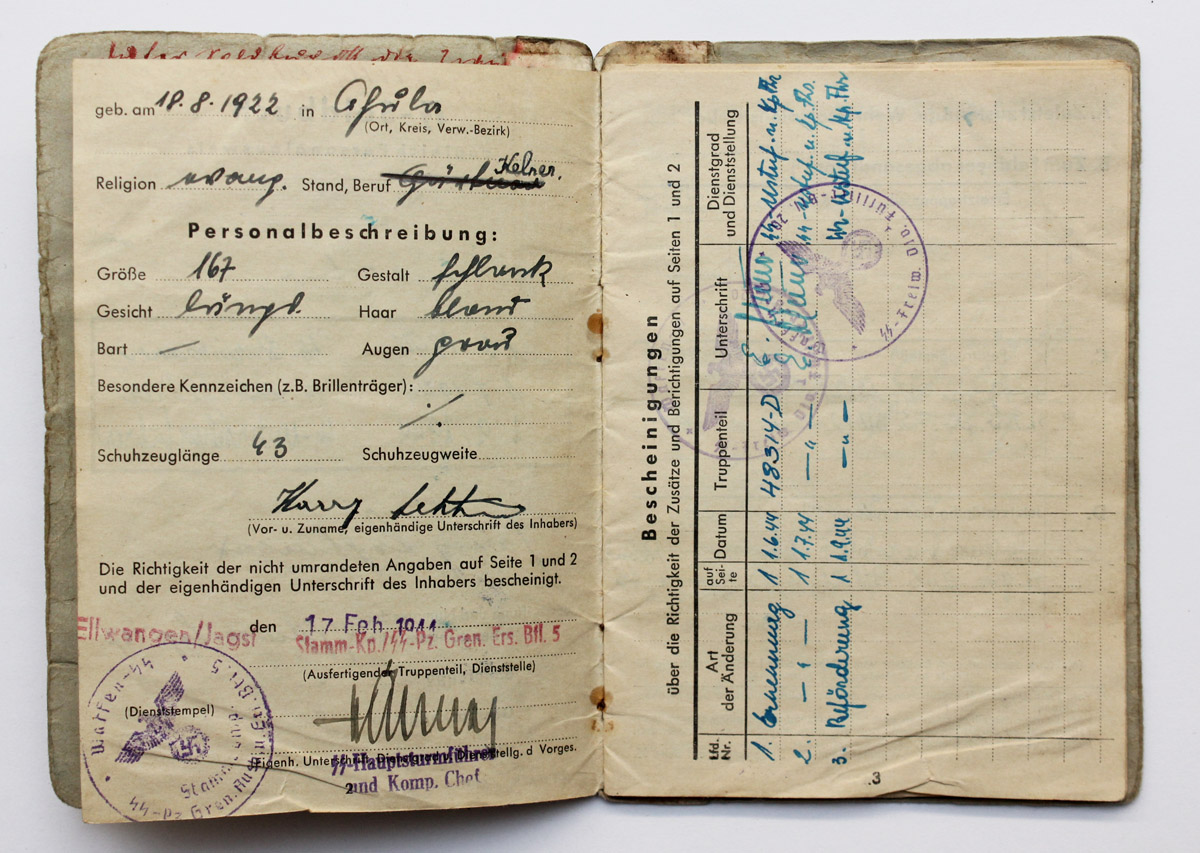 geb. am 18.8.1922 in
(Ort, Kreis, Verw.-Bezirk)
Religion evang. Stand, Beruf Kelner.
Personalbeschreibung:
Größe 167 Gestalt schlank
Gesicht längl. Haar blond
Bart — Augen grau
Besondere Kennzeichen (z.B. Brillenträger):
./.
Schuhzeuglänge 43 Schuhzeugweite
Harry
(Vor- u. Zuname, eigenhändige Unterschrift des Inhabers)
Die Richtigkeit der nicht umrandeten Angaben auf Seite 1 und 2
und der eigenhändigen Unterschrift des Inhabers bescheinigt.
Ellwangen/Jagst den 17 Feb 1944
Stamm-Kp./SS-Pz. Gren. Ers. Btl. 5
(Ausfertigender Truppenteil, Dienststelle)
(Dienststempel)
Waffen-SS
SS-Pz. Gren.
(Eigenh. Unterschrift, Dienstgrad u. Dienststellg. d Vorges.
SS-Hauptsturmführer
und Komp. Chef
2
Bescheinigungen
über die Richtigkeit der Zusätze und Berichtigungen auf Seiten 1 und 2
Lfd. Nr. Art der Änderung auf Seite Datum Truppenteil Unterschrift Dienstgrad und Dienststellung
1. Ernennung 1 1.6.44 48314-D SS-Ustuf. u. Kp. Fhr
2. — " — 1 1.7.44 — " — SS-Ustuf. u. Kp. Fhr.
3. Beförderung 1 1.9.44 — " — SS-Ustuf. u. Kp. Fhr
SS-Freiw. Div. Füsilier-Btl. 20
3